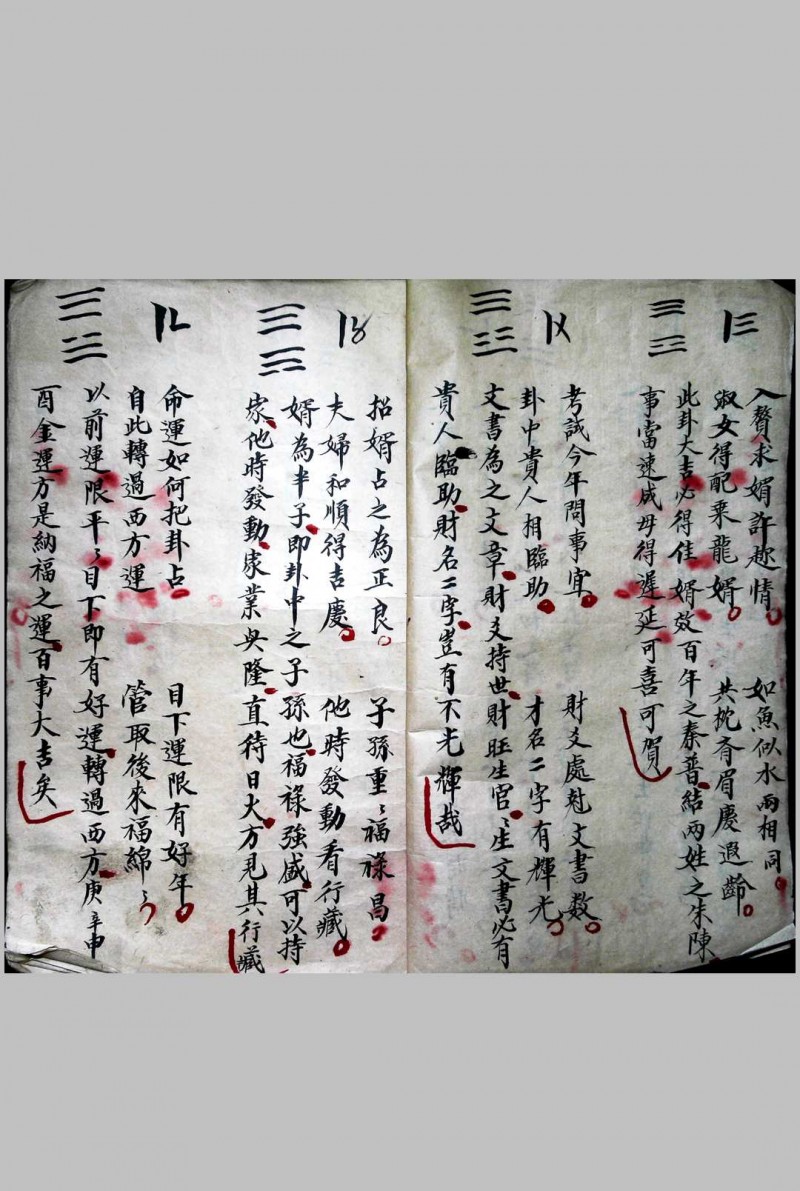 入贅求婿許趂情　如魚似水兩相同
淑女得配乘龍婿　共枕齊眉慶遐齡
此卦大吉必得佳婿效百年之秦晉結兩姓之朱陳
事當速成毋得遲延可喜可賀
考試今年問事宜　財爻處尅文書数
卦中貴人相臨助　才名二字有輝光
文書為之文章財爻持世財旺生官〻生文書必有
貴人臨助財名二字豈有不光輝哉
招婿占之為正良　子孫重〻福祿昌
夫婦和順得吉慶　他時發動看行藏
婿為半子即卦中之子孫也福祿強盛可以持
家他時發動家業興隆直待日大方見其行藏
命運如何把卦占　目下運限有好年
自此轉過西方運　管取後來福綿〻
以前運限平〻目下即有好運轉過西方庚辛申
酉金運方是納福之運百事大吉矣